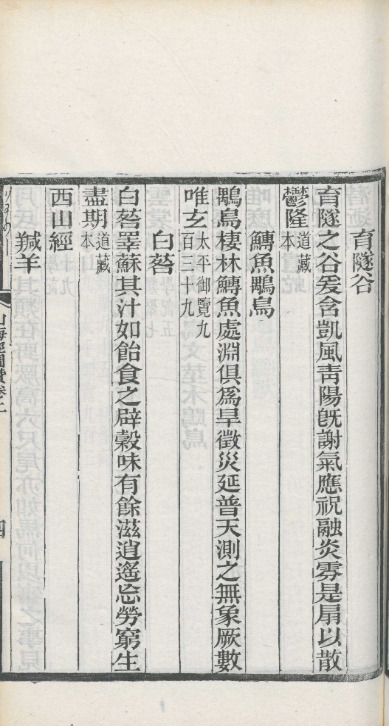 育隧谷
育隧之谷爰含凱風靑陽旣謝氣應祝融炎雰是扇以散
鬱隆道藏本
鱄魚鷶鳥
鷶鳥棲林鱄魚處淵俱爲旱徵災延普天測之無象厥數
唯玄太平御覽九百三十九
白䓘
白䓘睪蘇其汁如飴食之辟穀味有餘滋逍遙忘勞窮生
盡期道藏本
西山經
羬羊
山海經圖贊卷上
四